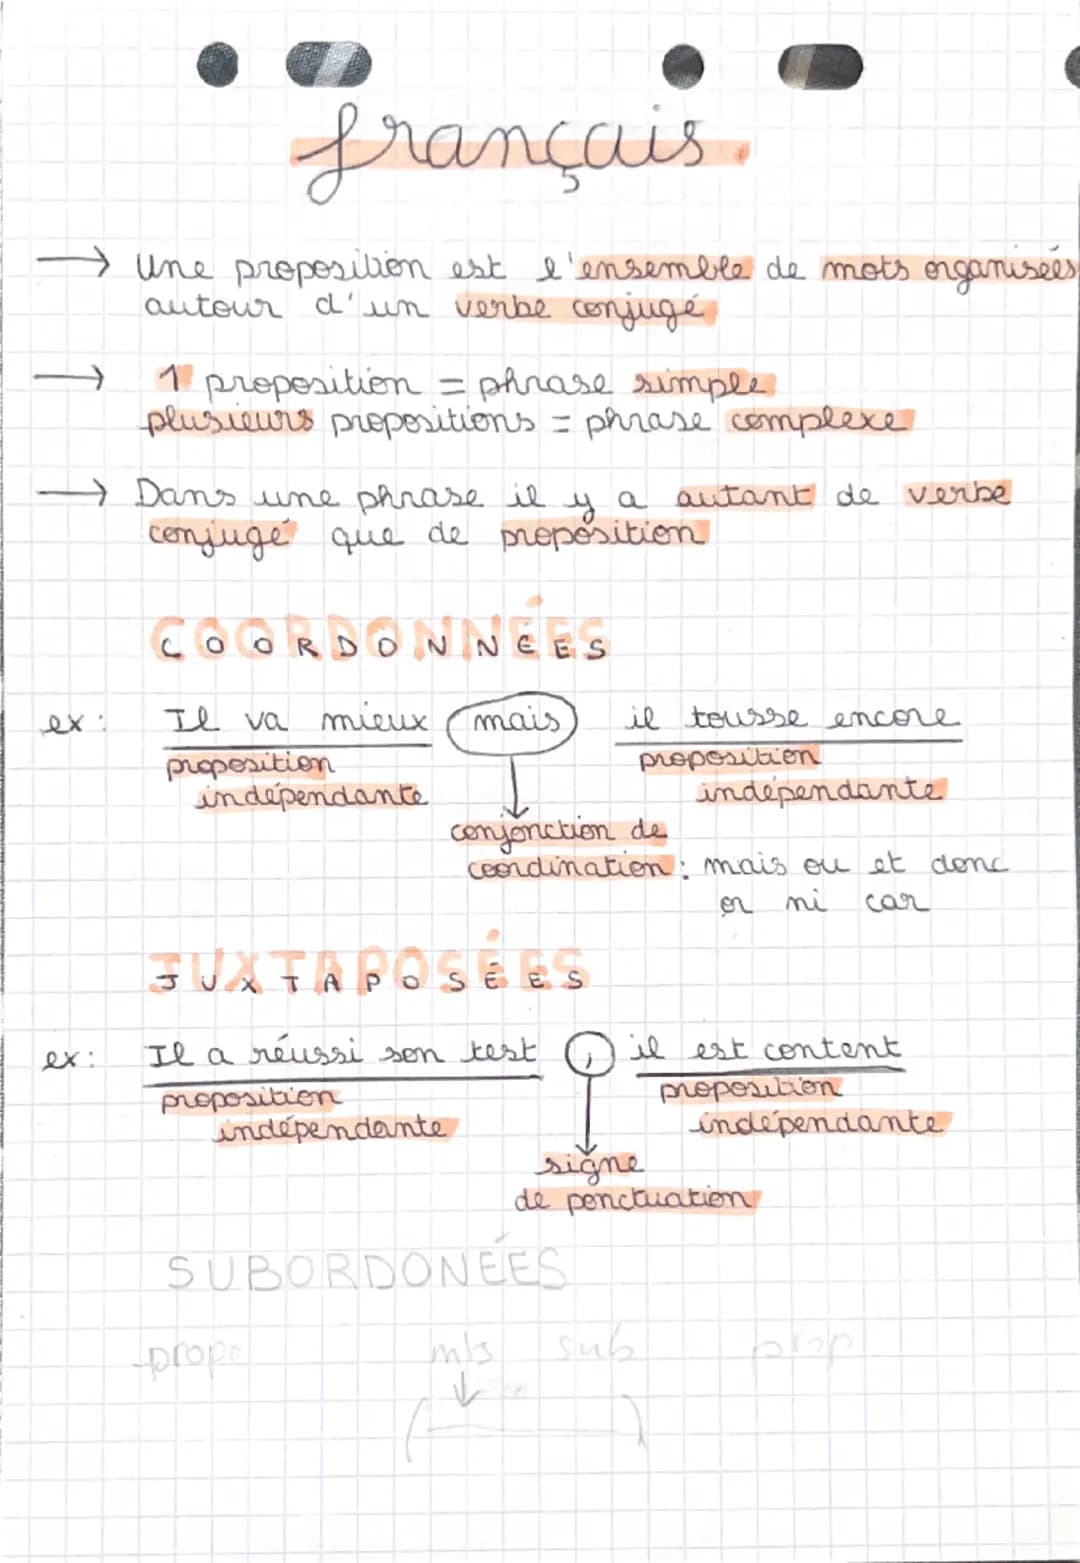 français.
→ Une proposition est l'ensemble de mots organisées
autour d'un verbe conjugé
→ 1 proposition = phrase simple
plusieurs propositions = phrase complexe
→ Dans une phrase il y a autant de verbe
conjugé que de proposition
COORDONNÉES
ex: Il va mieux mais il tousse encore
proposition indépendante proposition indépendante
conjonction de
coordination : mais ou et donc
or ni car
JUXTAPOSÉES
ex: Il a réussi son test , il est content
proposition indépendante proposition indépendante
signe
de ponctuation
SUBORDONÉES
propo mts sub prop